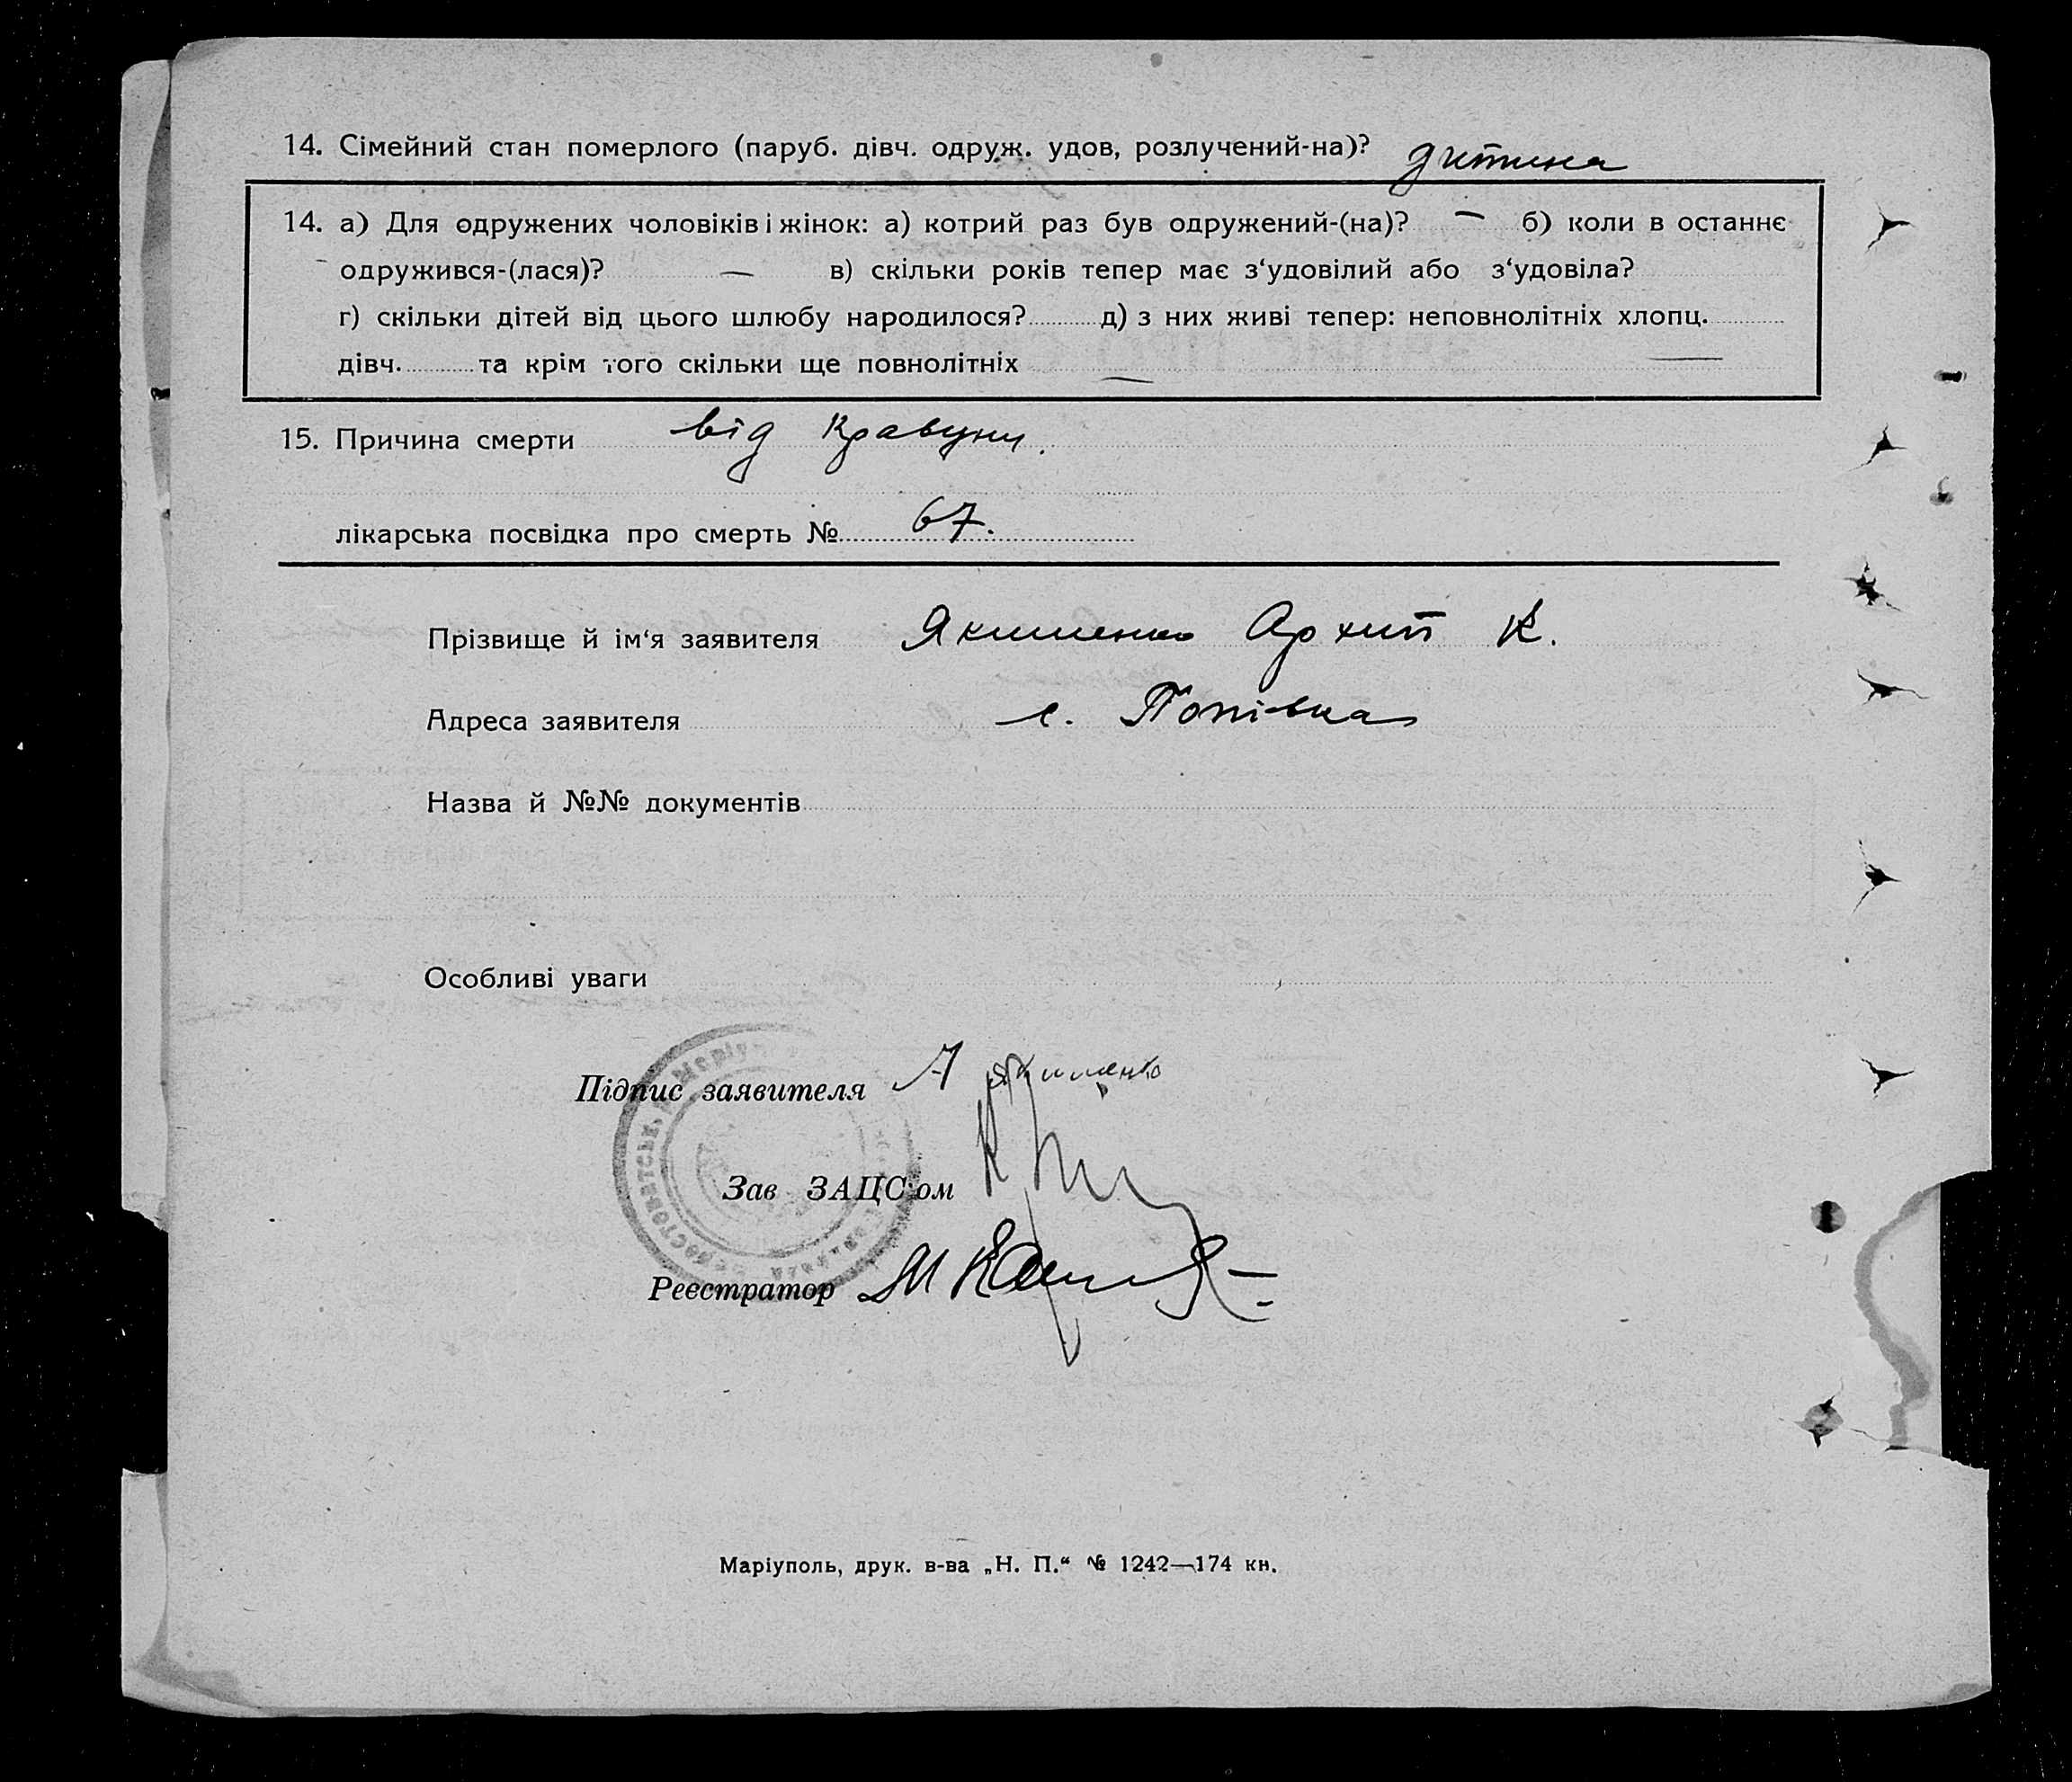 14. Сімейний стан померлого (паруб. дівч. одруж. удов, розлучений-на)? дитина
14. а) Для одружених чоловіків і жінок: а) котрий раз був одружений-(на)? — б) коли в останнє
одружився-(лася)? — в) скільки років тепер має з‘удовілий або з‘удовіла?
г) скільки дітей від цього шлюбу народилося? д) з них живі тепер: неповнолітніх хлопц. —
дівч. та крім того скільки ще повнолітніх —
15. Причина смерти від кравуни.
лікарська посвідка про смерть № 67.
Прізвище й ім‘я заявителя Якименко Архип К.
Адреса заявителя с. Попівка
Назва й №№ документів
Особливі уваги
Підпис заявителя А Якименко
Зав ЗАЦС‘ом
Реєстратор
Маріуполь, друк. в-ва „Н. П.“ № 1242—174 кн.